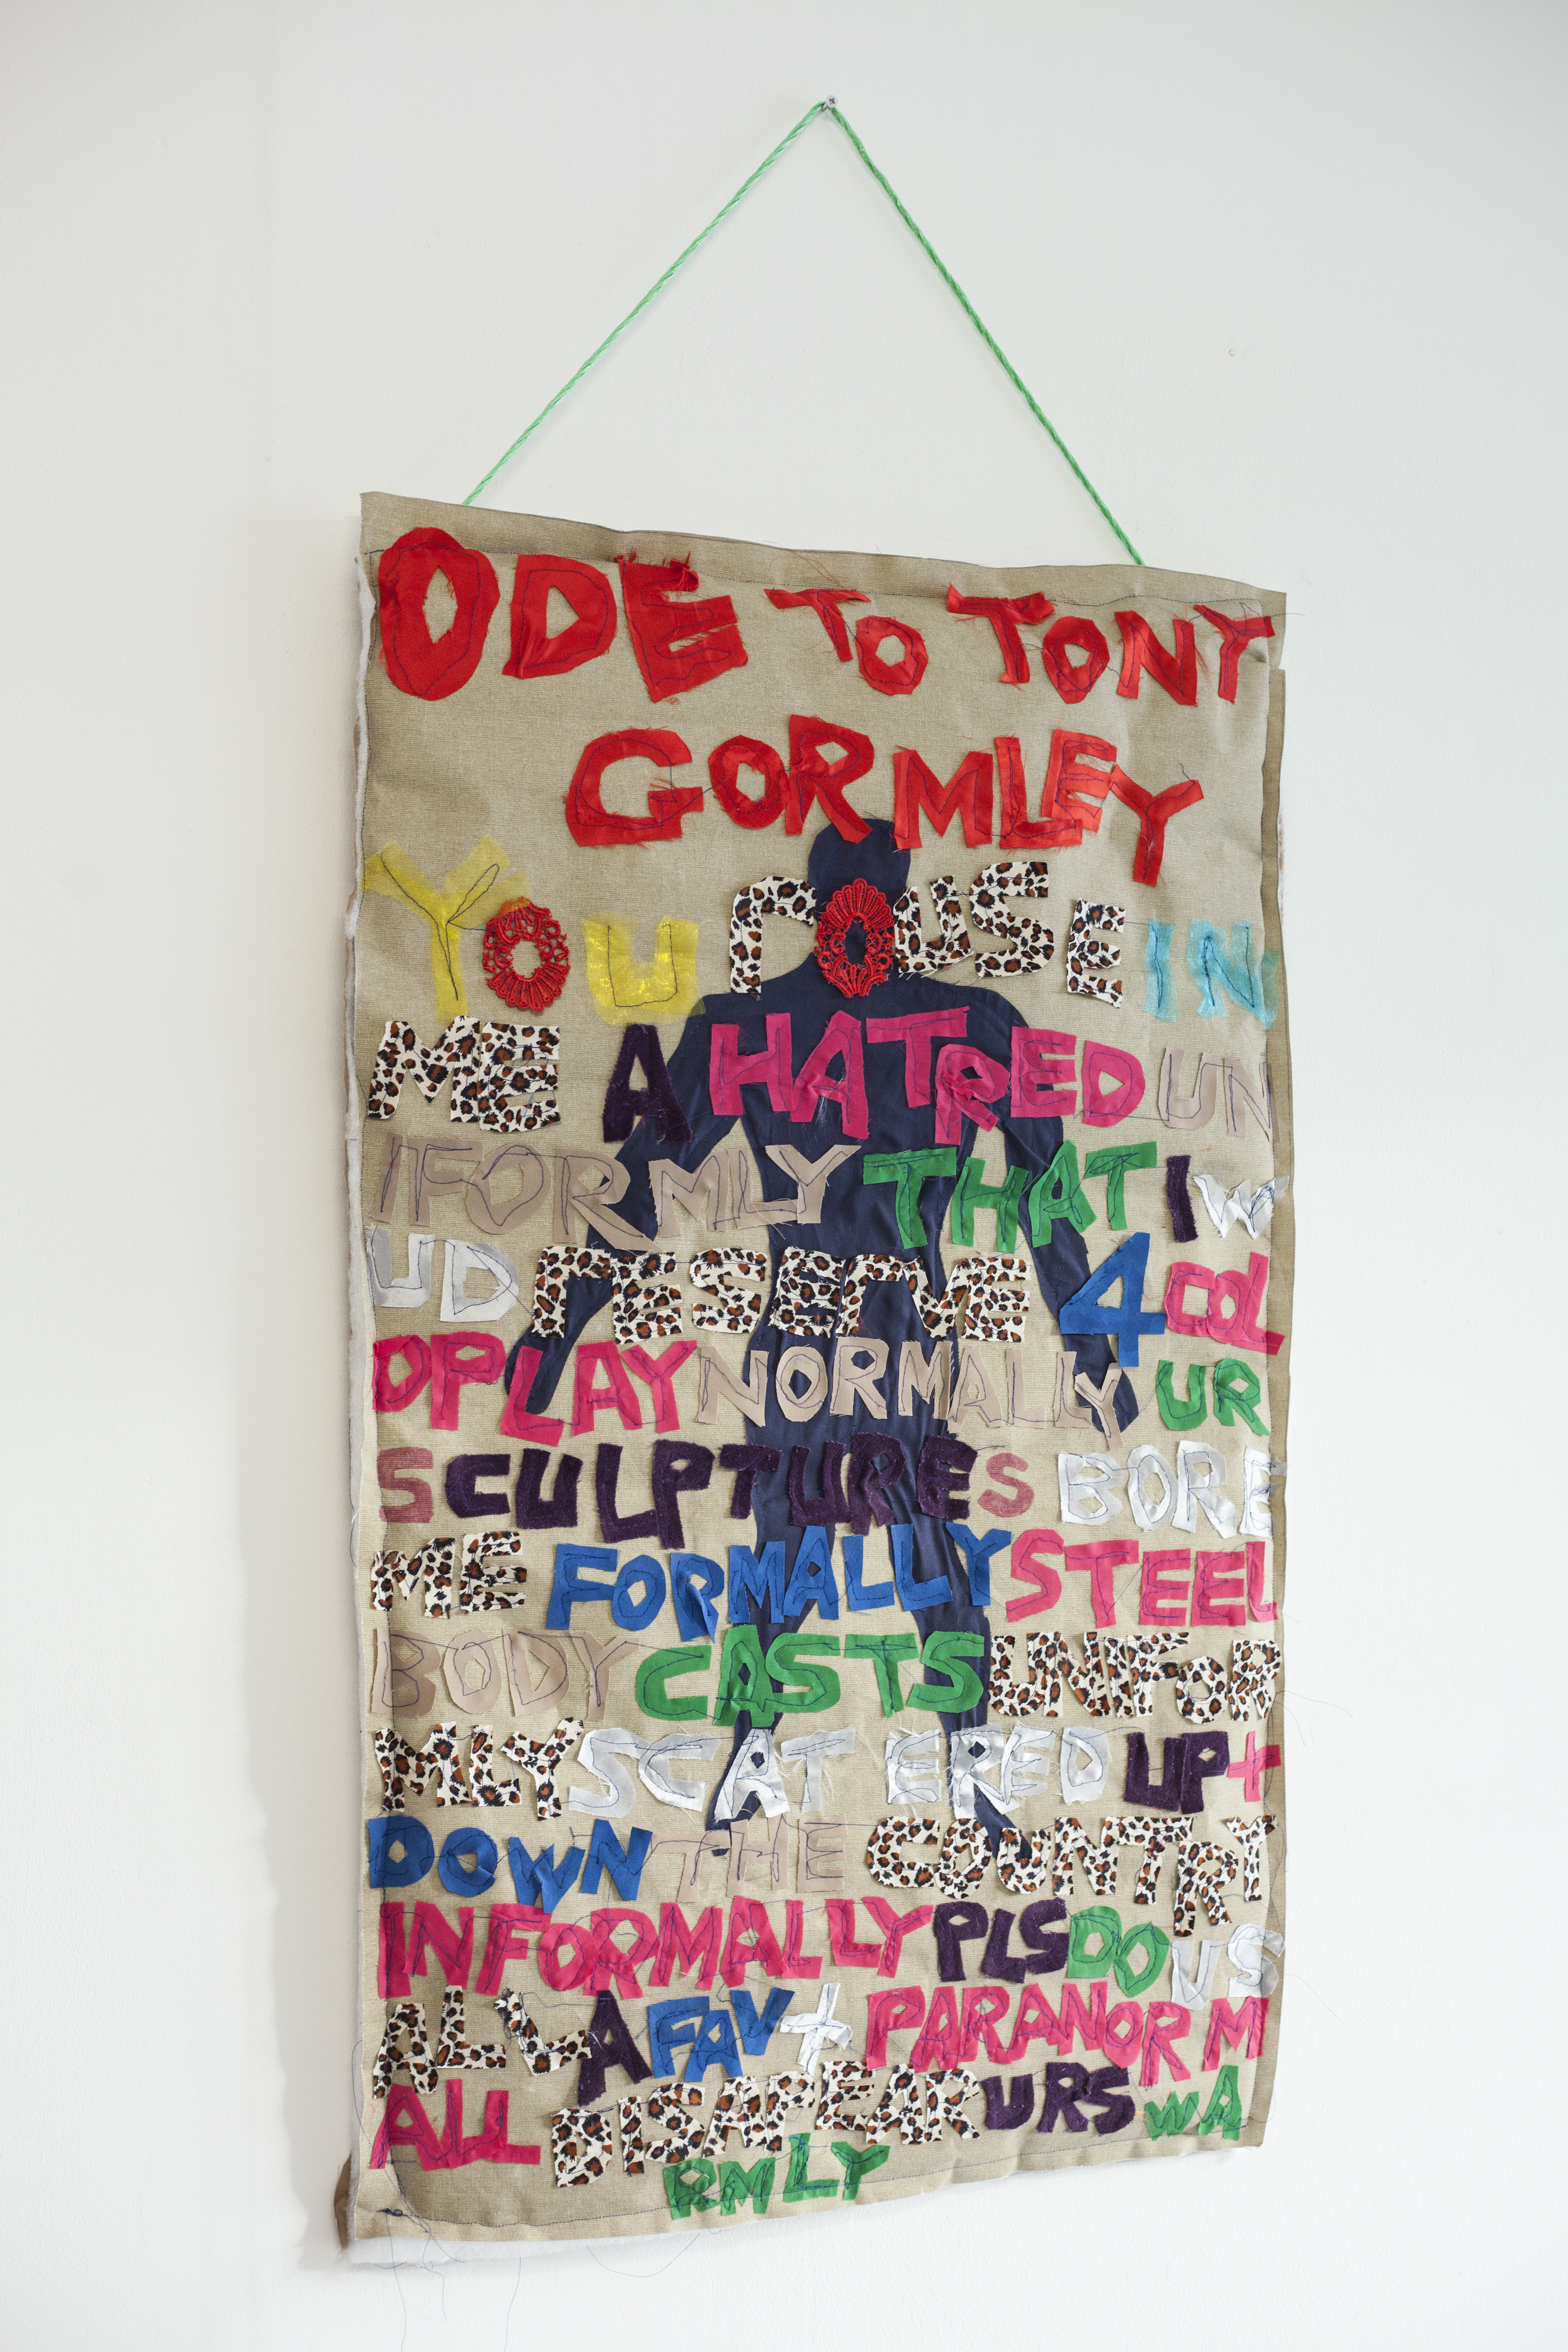 ODE TO TONY
GORMLEY
YOU rOUSE IN
ME A HATRED UN
IFORMLY THAT I W
UD rESErVE 4 COL
DPLAY NORMALLY UR
SCULPTURES BORE
ME FORMALLY STEEL
BODY CASTS UNIFOR
MLY SCAT ERED UP +
DOWN THE COUNTRY
INFORMALLY PLS DO US
ALL A FAV + PARANORM
ALL DISAPEAR URS WA
RMLY